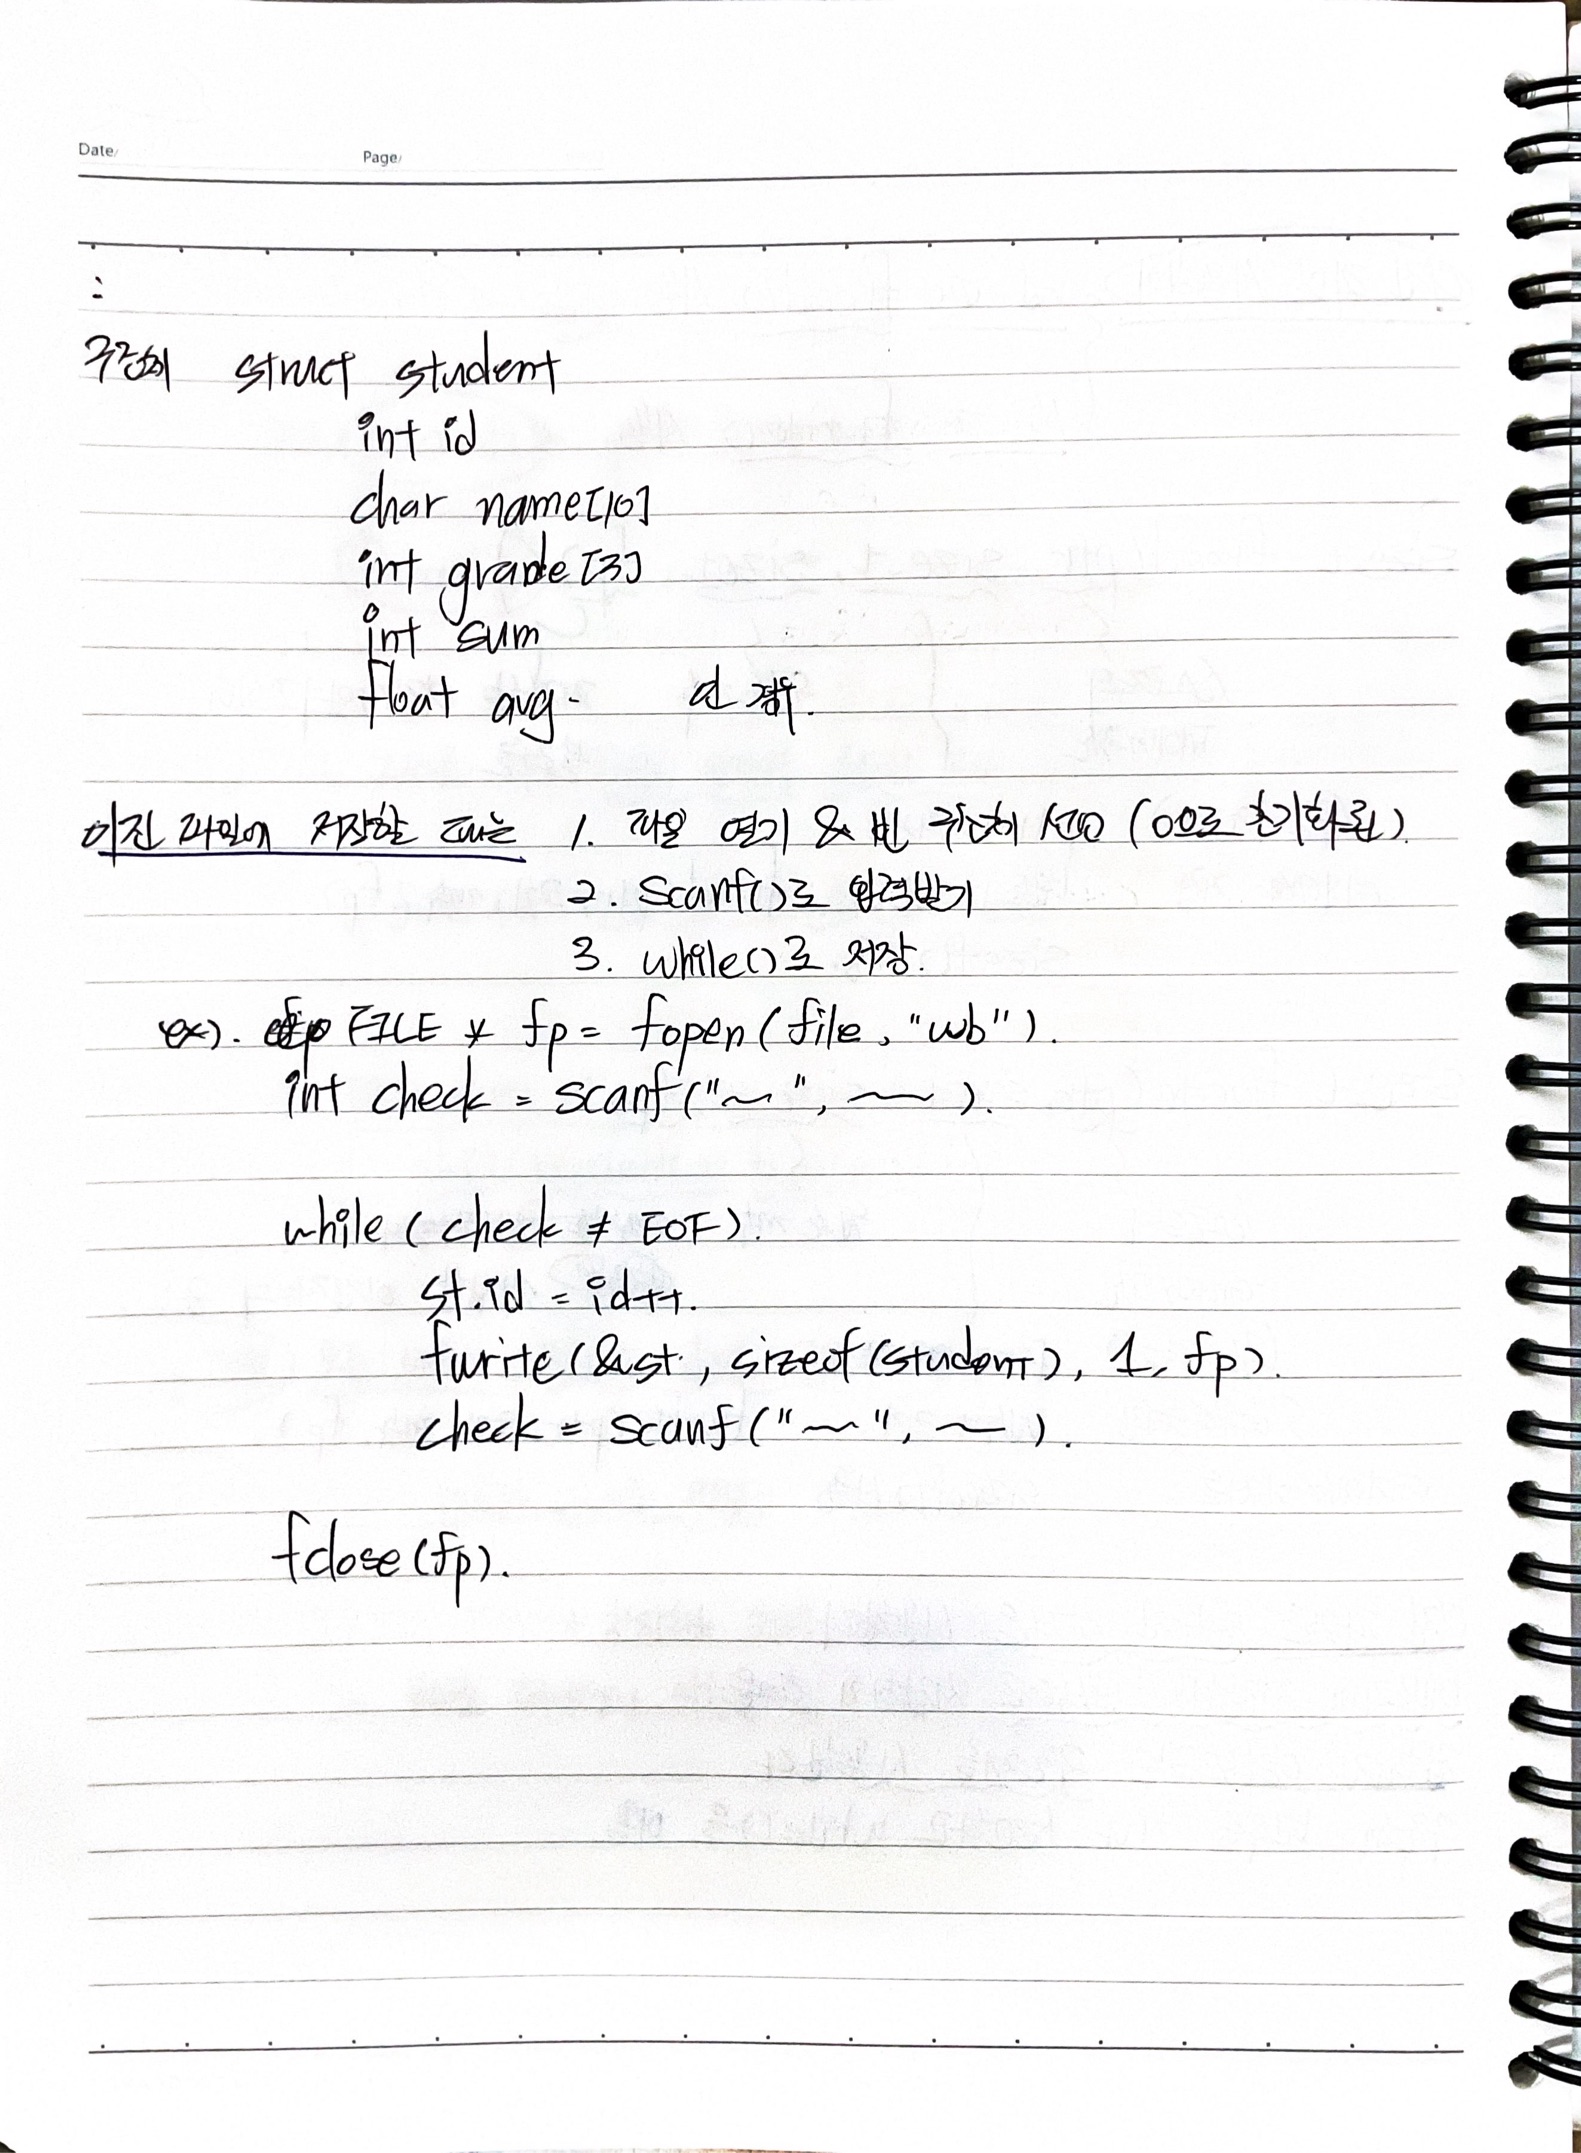 Date/ Page/
:
구조체 struct student
int id
char name[10]
int grade[3]
int sum
float avg - 인 경우.
이진 파일에 저장할 때는 1. 파일 열기 & 빈 구조체 선언 (0으로 초기화됨).
2. scanf()로 입력받기
3. while()로 저장.
ex). FILE * fp = fopen(file, "wb").
int check = scanf("~", ~).
while (check ≠ EOF).
st.id = id++.
fwrite(&st, sizeof(student), 1, fp).
check = scanf("~", ~).
fclose(fp).